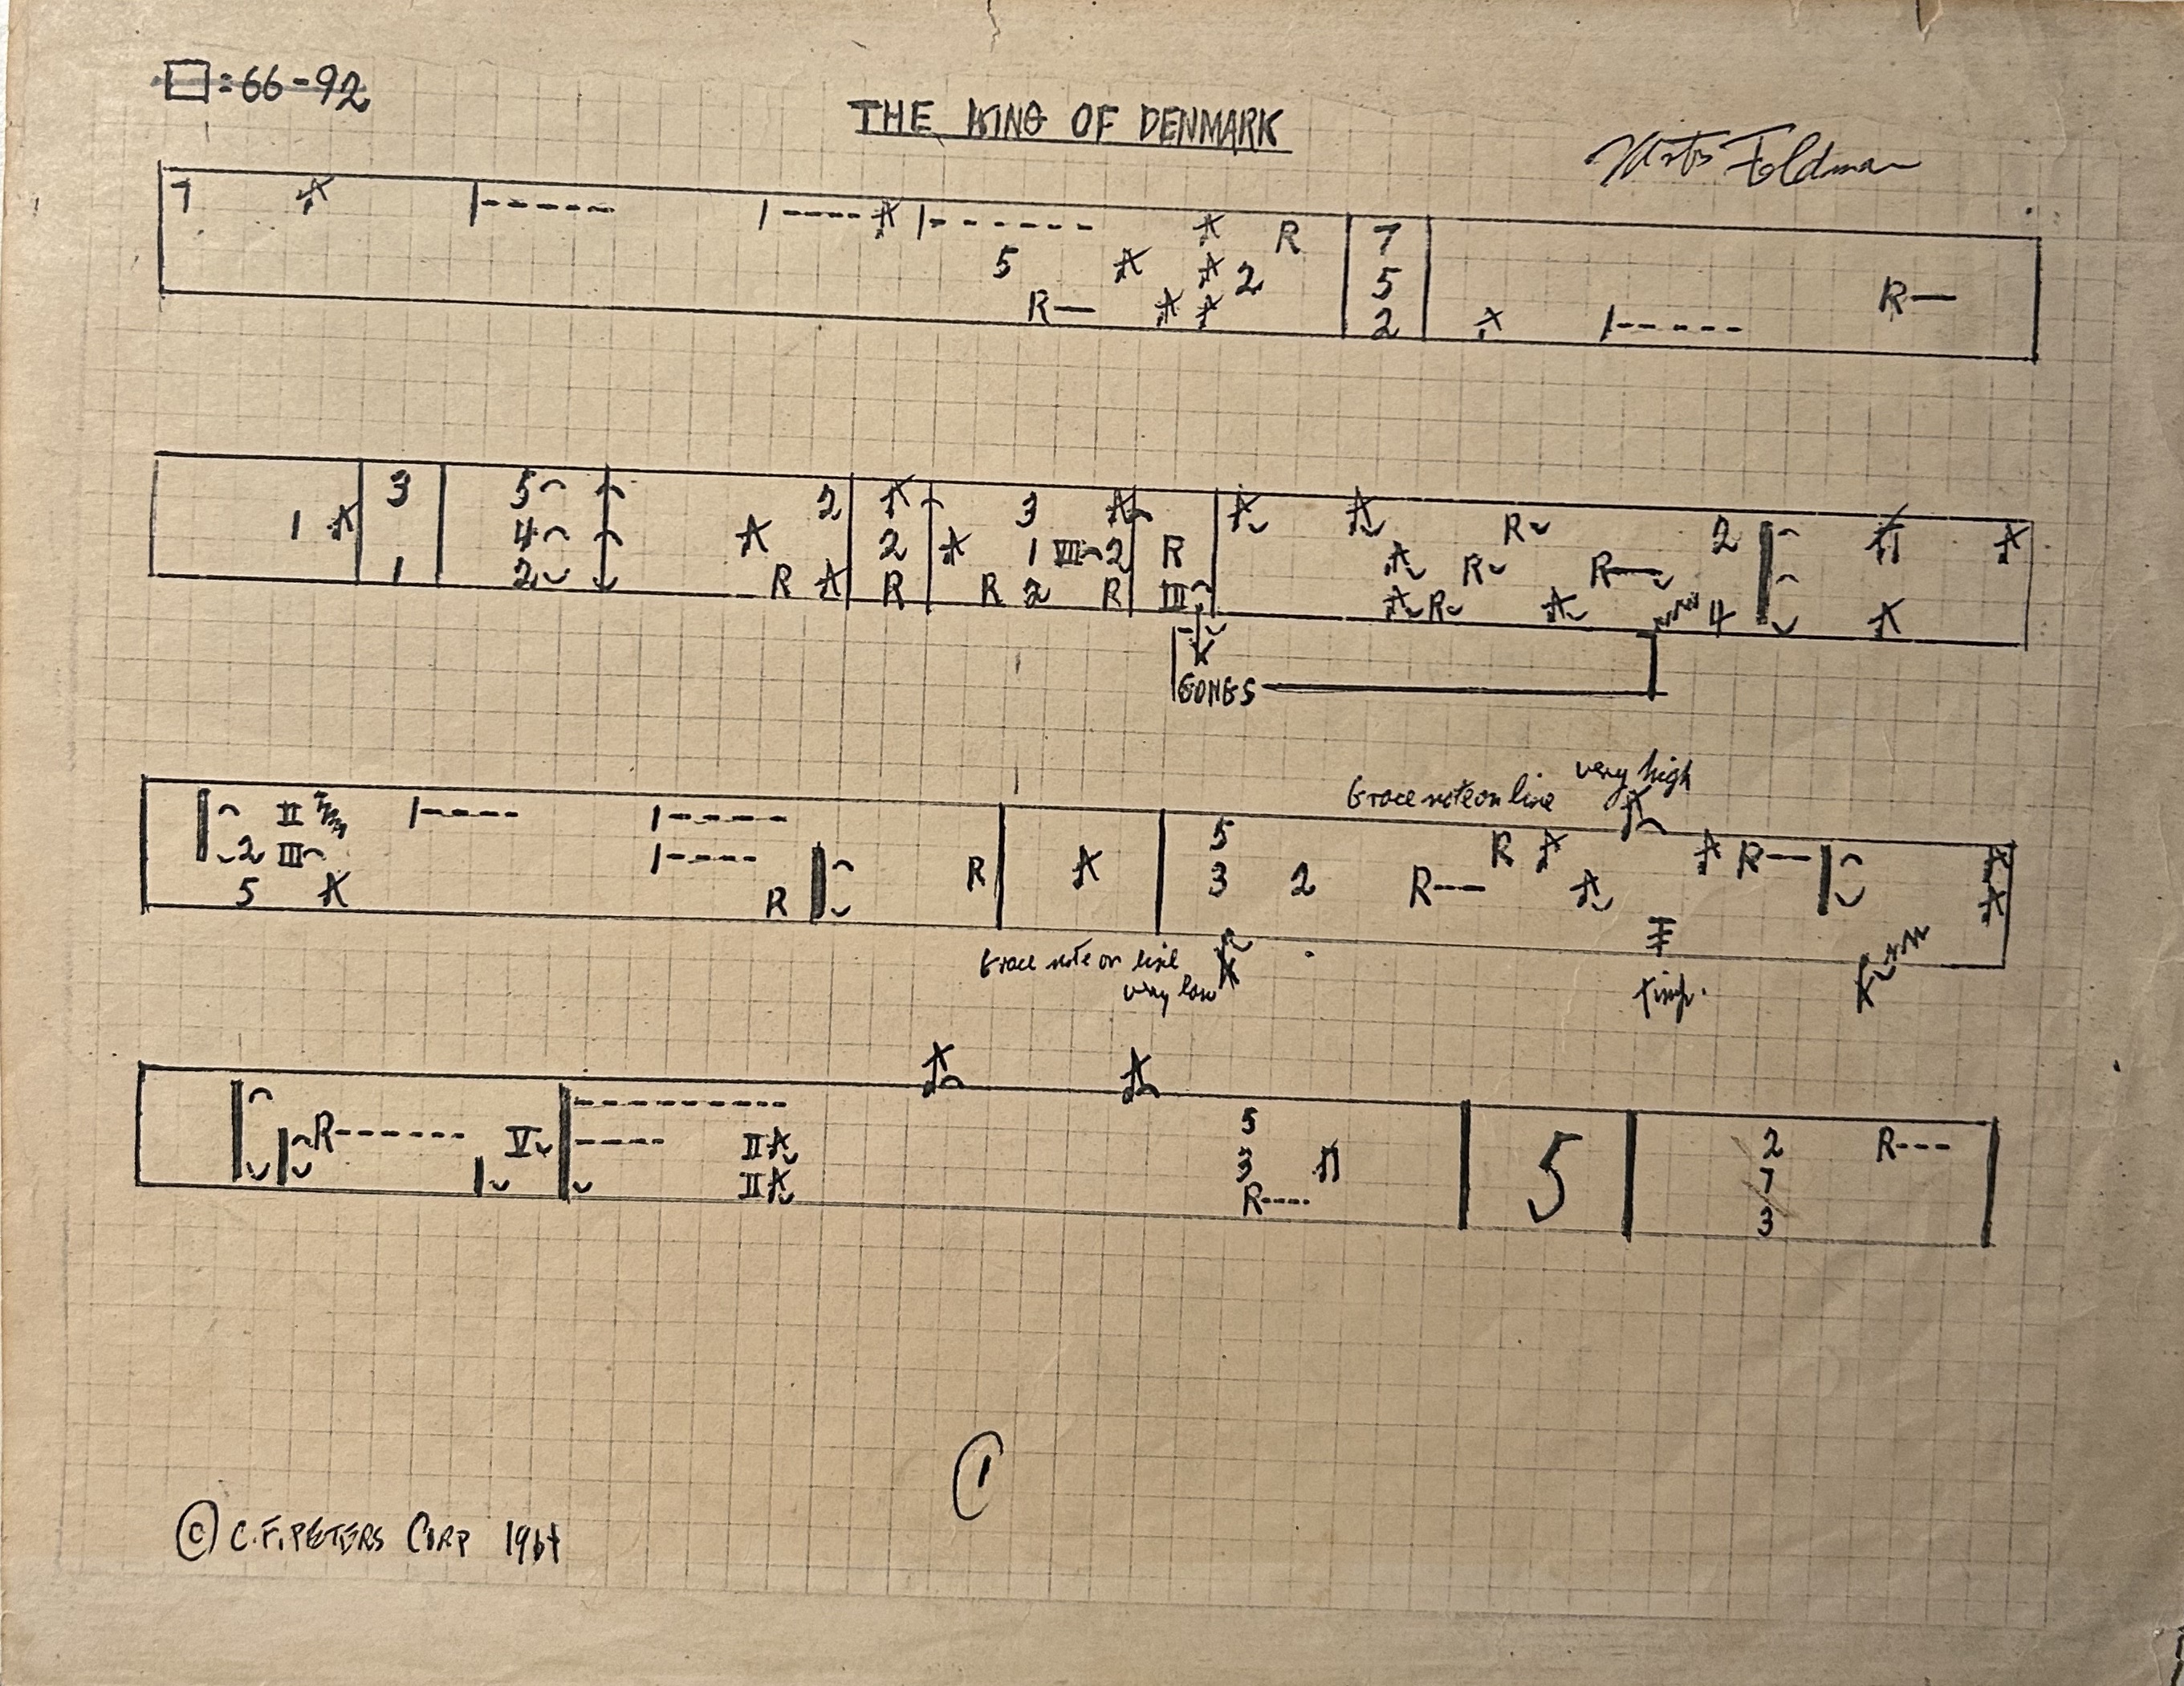 □=66-92
THE KING OF DENMARK
Morton Feldman
7
R
5 2
R—
7
5
2
R—
1
3
1
5
4
2
2
R
2
R
3
1 VII 2
R 2 R
R
III
R
R R—
R
2
4
GONGS
very high
Grace note on line
II
2 III
5
R
R
5
3 2
R---
R
R--
Grace note on line
very low
Timp.
R------
V
II
II
5
3
R----
5
2
7
3
R---
1
© C.F. PETERS CORP 1964